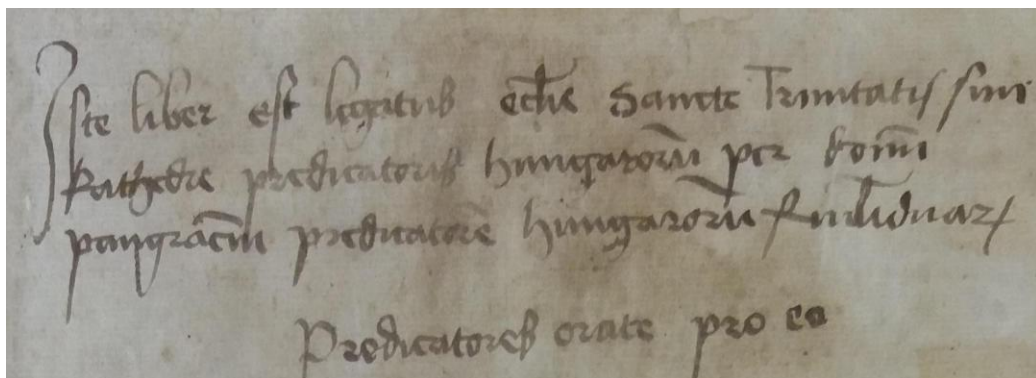 Iste liber est legatus eccl̄ie Sancte Trinitatis siue
kathedre predicatoris hungarorū per domī
pangraciū predicatorē hungarorū
Predicatores orate pro eo